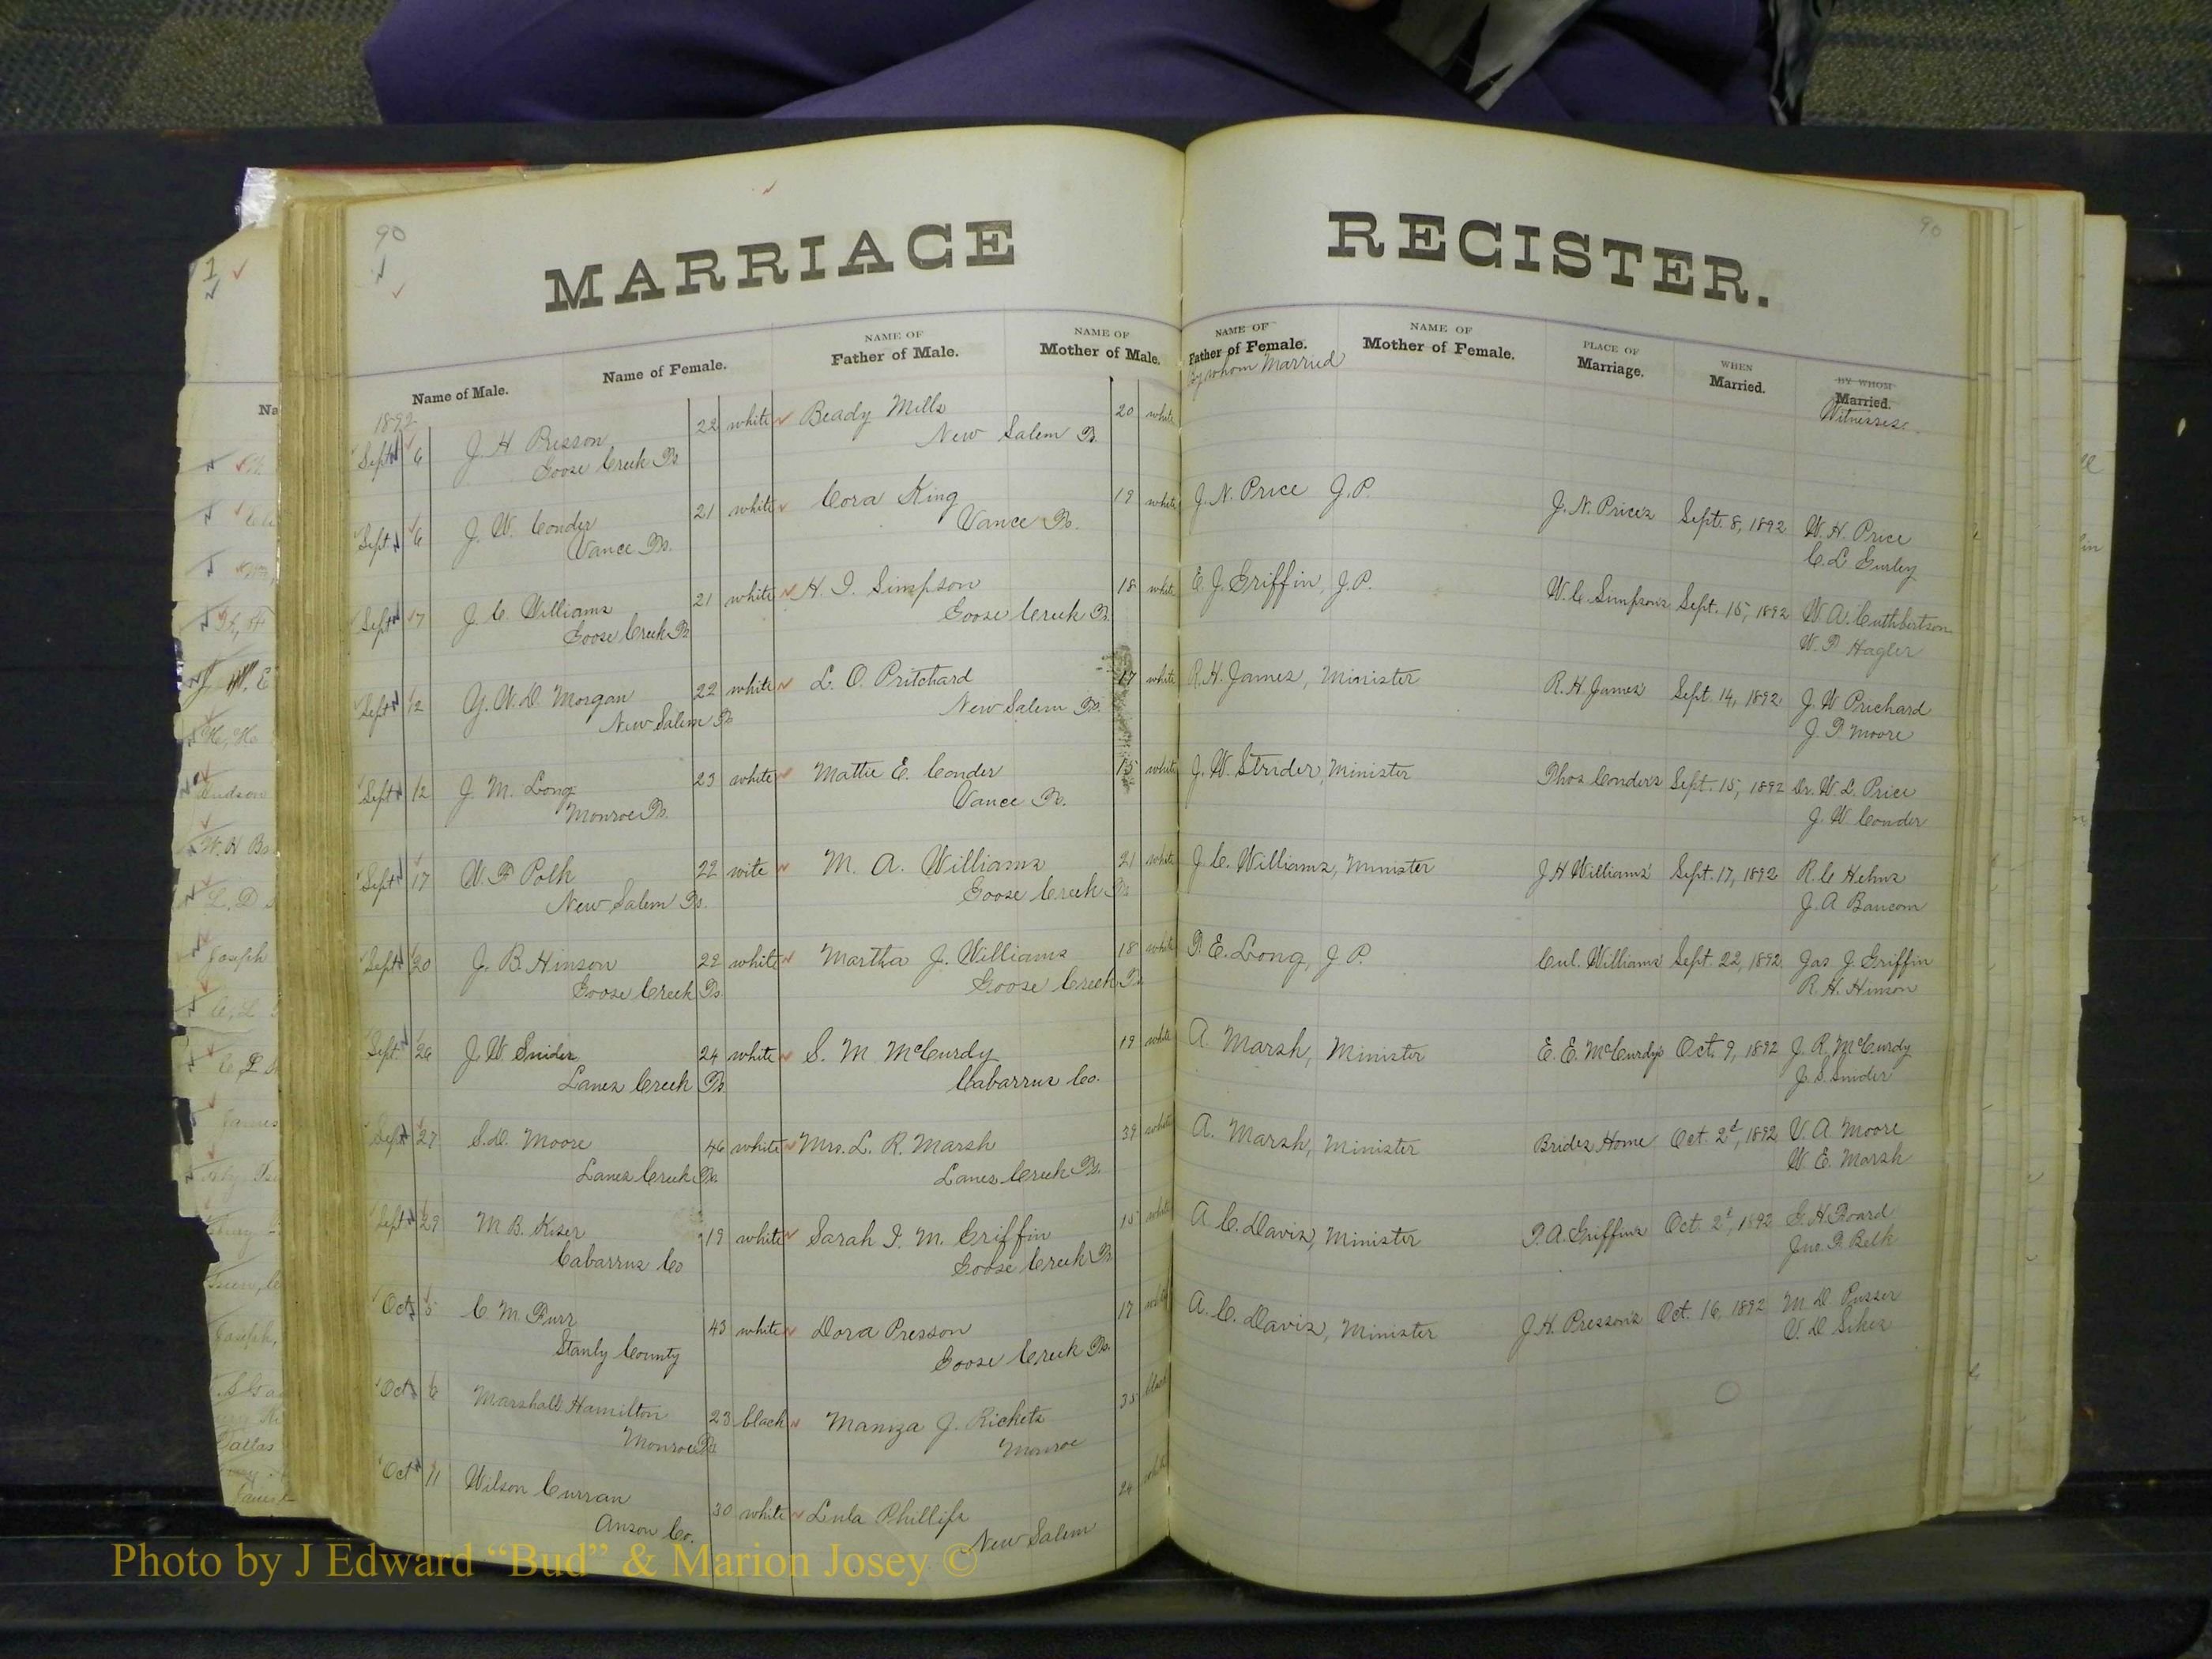 90
MARRIAGE REGISTER.
90
Name of Male. Name of Female. NAME OF Father of Male. NAME OF Mother of Male. NAME OF Father of Female. NAME OF Mother of Female. PLACE OF Marriage. WHEN Married. BY WHOM Married.
By whom Married
Witnesses.
1892
Sept 6 J. H Presson 22 white Beady Mills 20 white
Goose Creek Ts New Salem Ts.
Sept. 6 J. W. Conder 21 white Cora King 19 white J. N. Price J.P. J. N. Prices Sept. 8, 1892 W. H. Price
Vance Ts. Vance Ts. C. L Gurley
Sept 7 J. C. Williams 21 white H. I. Simpson 18 white E. J. Griffin, J.P. W. C. Simpsons Sept. 15, 1892 W. A. Cuthbertson
Goose Creek Ts Goose Creek Ts. W. P Hagler
Sept 12 G. W. D. Morgan 22 white L. O. Pritchard 17 white R. H. James, Minister R. H. James' Sept. 14, 1892 J. W Prichard
New Salem Ts New Salem Ts. J. P. Moore
Sept 12 J. M. Long 23 white Mattie E. Conder 15 white J. W. Strider, Minister Thos. Conders Sept. 15, 1892 Dr. W. L. Price
Monroe Ts. Vance Ts. J. W. Conder
Sept 17 W. P Polk 22 wite M. A. Williams 21 white J. C. Williams, Minister J H Williams' Sept. 17, 1892 R. C Helms
New Salem Ts. Goose Creek Ts. J. A Baucom
Sept 20 J. B. Hinson 22 white Martha J. Williams 18 white T. E. Long, J P. Cul. Williams' Sept. 22, 1892. Jas J. Griffin
Goose Creek Ts Goose Creek Ts R. H. Hinson
Sept. 26 J. W. Snider 24 white S. M McCurdy 19 white A. Marsh, Minister E. E. McCurdy's Oct. 9, 1892 J. R. McCurdy
Lanes Creek Ts Cabarrus Co. J. S. Snider
Sept 27 S. D. Moore 46 white Mrs. L. R. Marsh 39 white A. Marsh, Minister Brides Home Oct. 2d, 1892 V. A. Moore
Lanes Creek Ts. Lanes Creek Ts. W. E. Marsh
Sept 29 M. B. Kiser 19 white Sarah I. M. Griffin 15 white A. C. Davis, Minister T. A. Griffins Oct. 2d, 1892 G. H. Board
Cabarrus Co Goose Creek Ts Jno. P. Belk
Oct 5 C. M. Furr 43 white Dora Presson 17 white A. C. Davis, Minister J. H. Presson's Oct. 16, 1892 M. D. Pusser
Stanly County Goose Creek Ts. V. D Sikes
Oct 6 Marshall Hamilton 23 black Maniza J. Rickets 35 black
Monroe Ts Monroe
Oct 11 Wilson Curran 30 white Lula Phillips 24 white
Anson Co. New Salem
Photo by J Edward “Bud” & Marion Josey ©